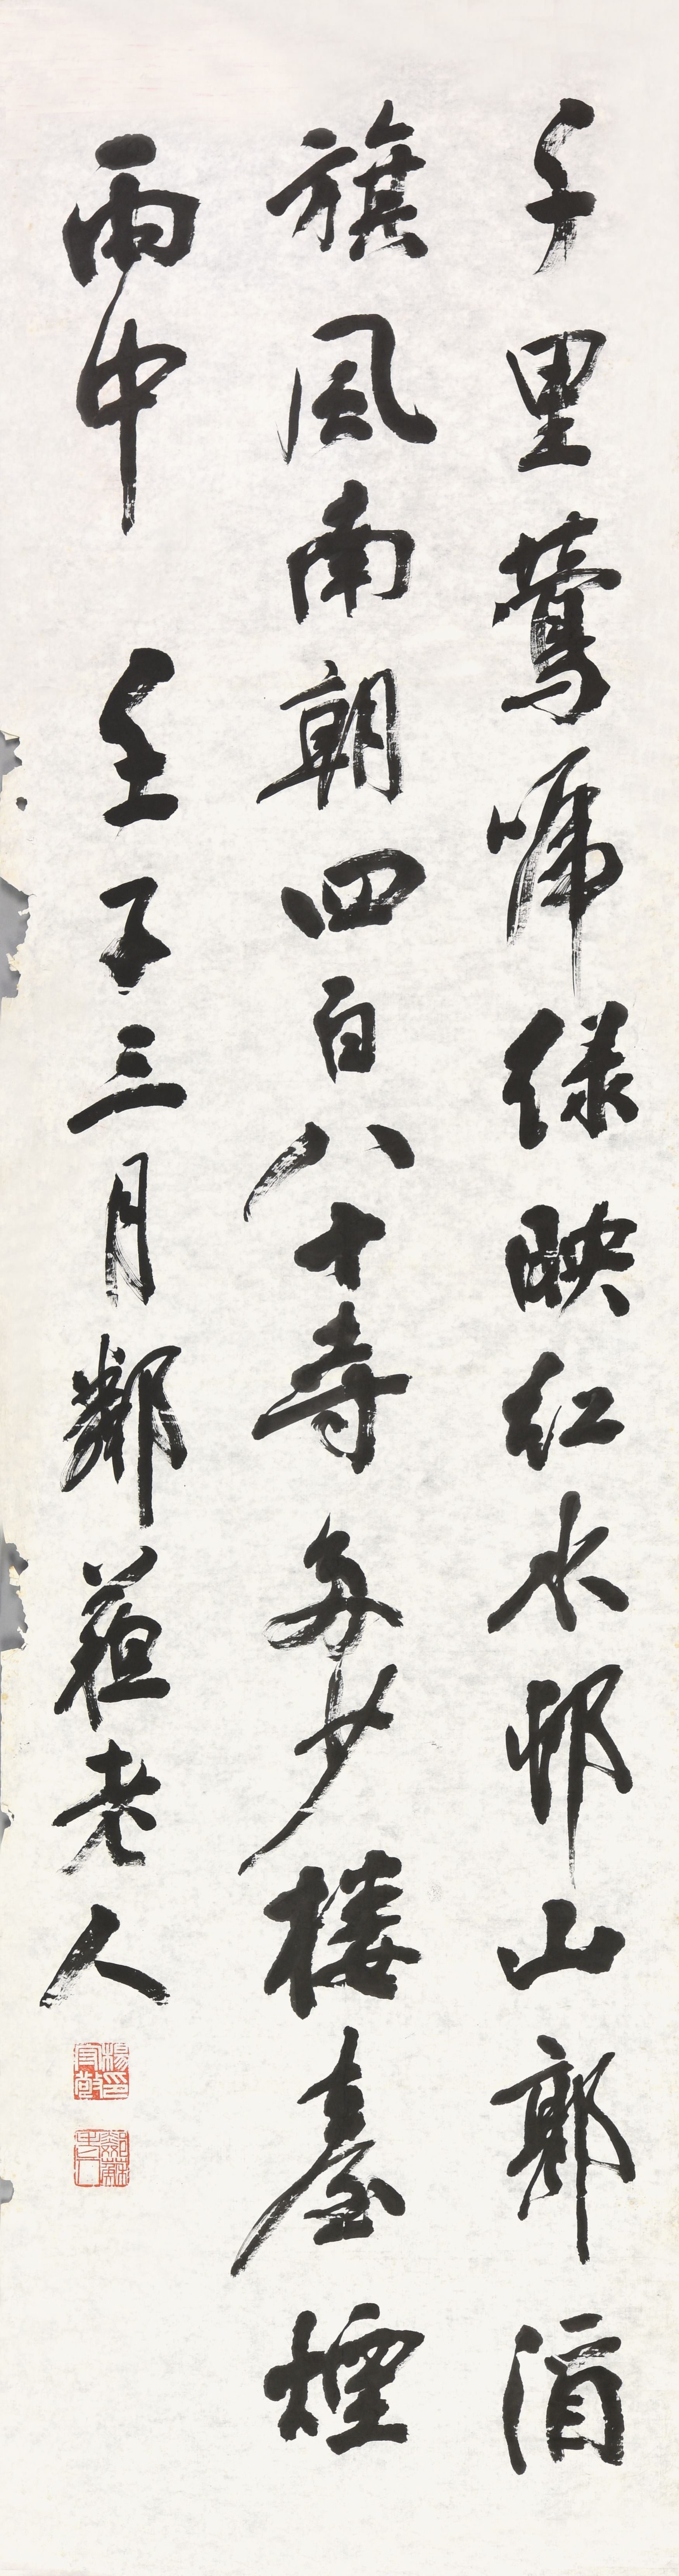 千里鶯啼绿映红水邨山郭酒
旗風南朝四百八十寺多少楼臺煙
雨中 壬子三月鄰蘇老人
楊守敬印